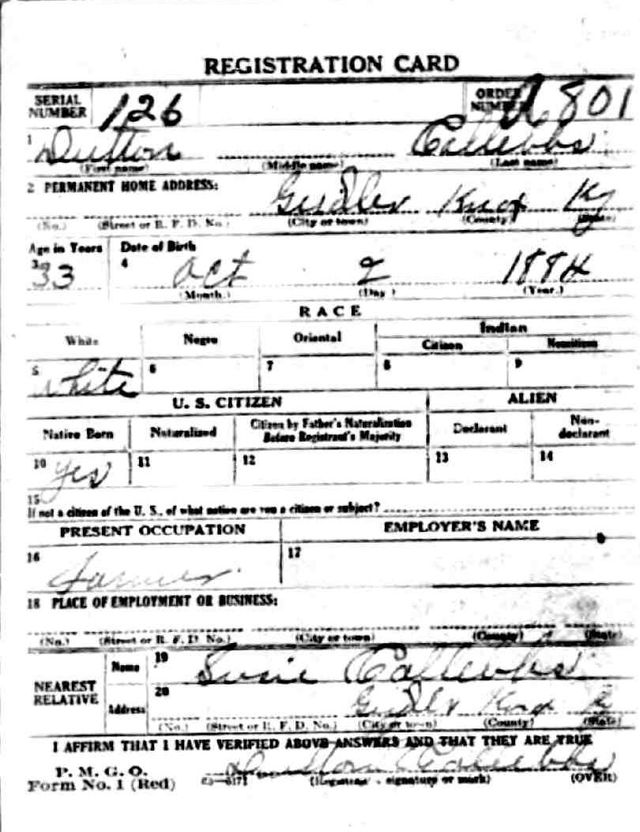 REGISTRATION CARD
SERIAL NUMBER 126 ORDER NUMBER A801
1 Dutton Callebbs
(First name) (Middle name) (Last name)
2 PERMANENT HOME ADDRESS:
Girdler Knox Ky
(No.) (Street or R. F. D. No.) (City or town) (County) (State)
Age in Years Date of Birth
3 33 4 Oct 2 1884
(Month.) (Day) (Year.)
RACE
White Negro Oriental Indian
Citizen Noncitizen
5 White 6 7 8 9
U. S. CITIZEN ALIEN
Native Born Naturalized Citizen by Father's Naturalization Before Registrant's Majority Declarant Non-declarant
10 Yes 11 12 13 14
15
If not a citizen of the U. S., of what nation are you a citizen or subject?
PRESENT OCCUPATION EMPLOYER'S NAME
16 Farmer 17
18 PLACE OF EMPLOYMENT OR BUSINESS:
(No.) (Street or R. F. D. No.) (City or town) (County) (State)
NEAREST RELATIVE Name 19 Susie Callebbs
Address 20 Girdler Knox
(No.) (Street or R. F. D. No.) (City or town) (County) (State)
I AFFIRM THAT I HAVE VERIFIED ABOVE ANSWERS AND THAT THEY ARE TRUE
P. M. G. O.
Form No. 1 (Red) Dutton Callebbs
(Registrant's signature or mark) (OVER)